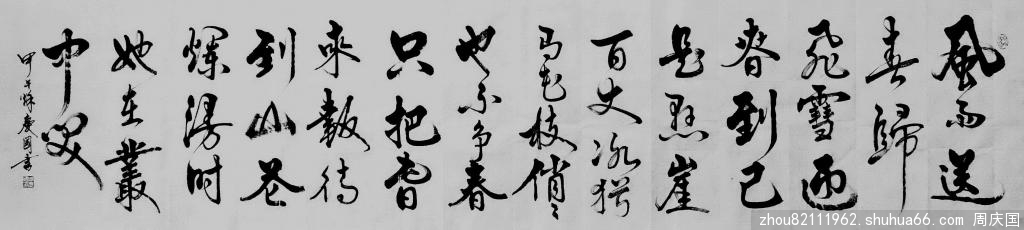 風雨送
春歸
飛雪迎
春到已
是懸崖
百丈冰猶
有花枝俏々
也不争春
只把春
来報待
到山花
爛漫时
她在叢
中笑
甲午秋慶國書
zhou82111962.shuhua66.com 周庆国